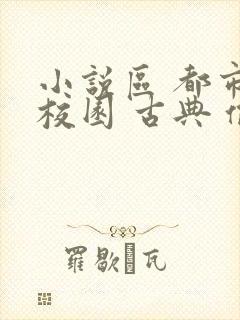 小說區 都市
校園 古典
羅歇 瓦